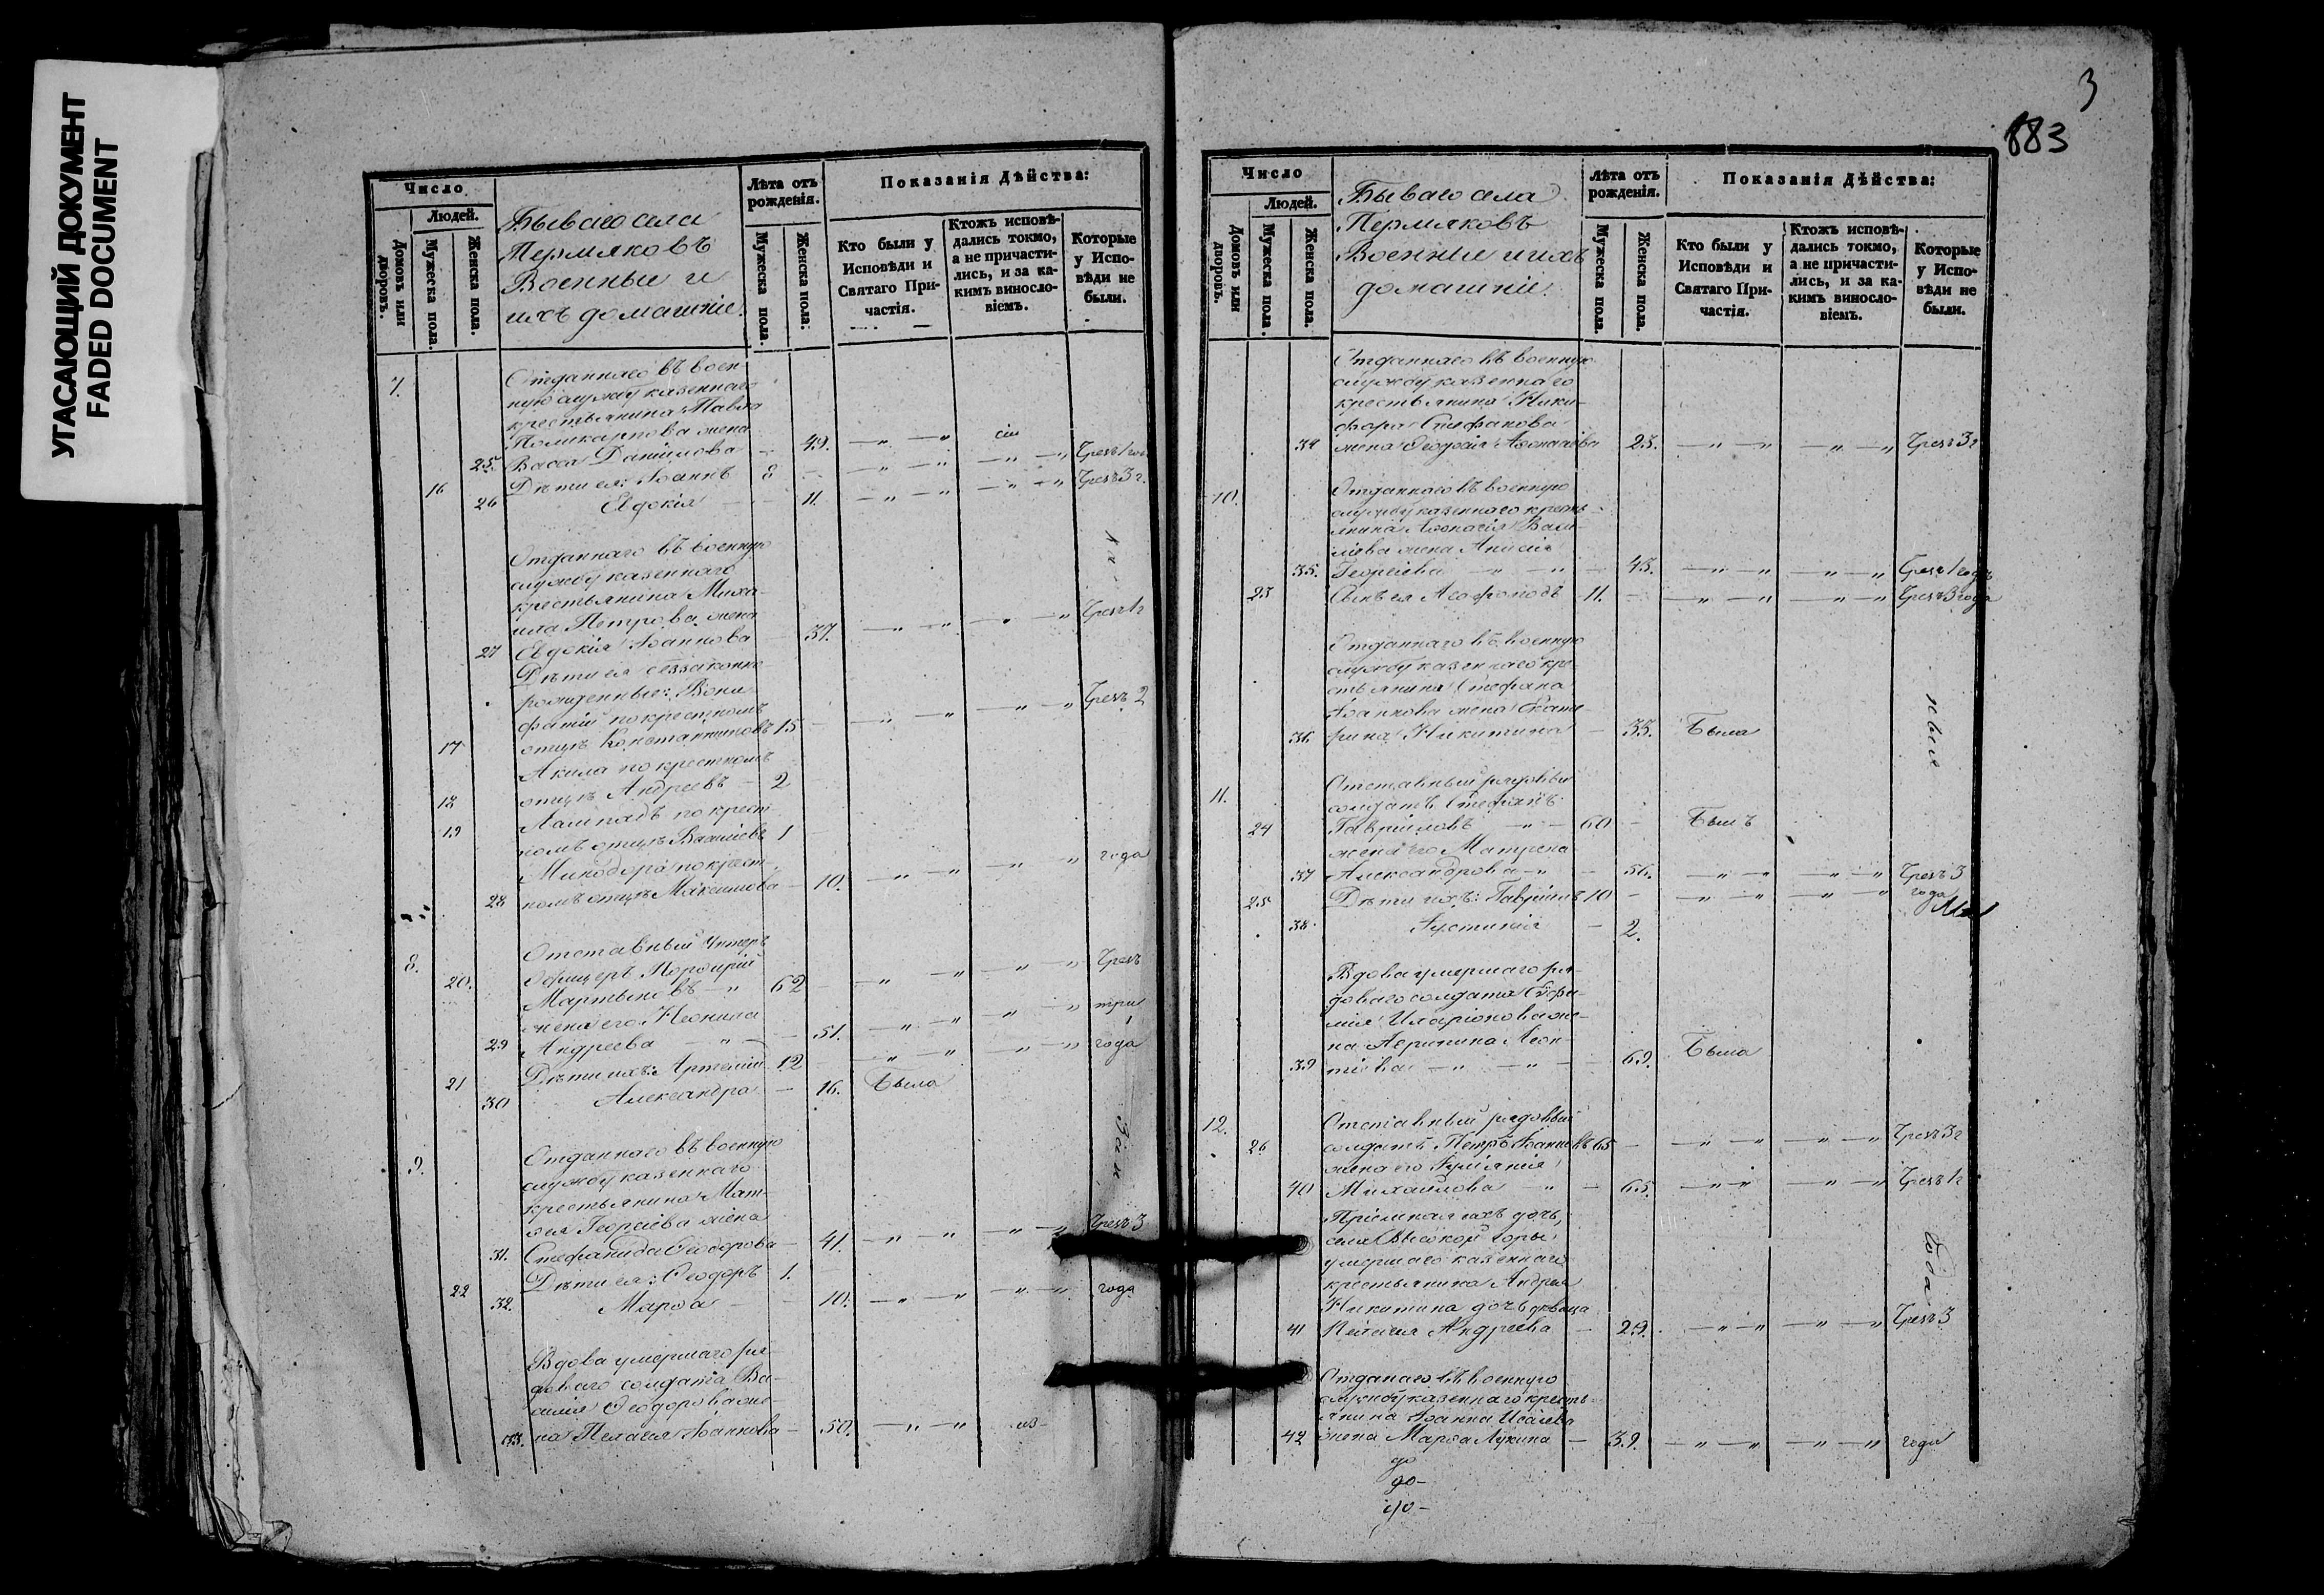 УГАСАЮЩИЙ ДОКУМЕНТ
FADED DOCUMENT
Число
Людей.
Домовъ или дворовъ.
Мужеска пола.
Женска пола.
Бываго села
Пермяковъ
Военные и
ихъ домашніе.
Лѣта отъ рожденія.
Мужеска пола.
Женска пола.
Показанія Дѣйства:
Кто были у Исповѣди и Святаго Причастія.
Ктожъ исповѣдались токмо, а не причастились, и за какимъ винословіемъ.
Которые у Исповѣди не были.
7. Отданнаго въ воен-
ную службу казеннаго
крестьянина Павла
Поликарпова жена
25. Васса Даніилова 49.
16 Дѣти ея: Іоаннъ 8 Чрезъ 1 годъ
26 Евдокія 11. Чрезъ 3 г.
Отданнаго въ военную
службу казеннаго
крестьянина Миха-
ила Петрова жена
27 Евдокія Іоаннова 37. Чрезъ 1 г
Дѣти ея беззаконно
рожденные: Вони-
фатій по крестномъ
17 отцѣ Константиновъ 15 Чрезъ 2
Акила по крестномъ
18 отцѣ Андреевъ 2
Лампадъ по крест-
19 номъ отцѣ Василіевъ 1
Минодора по крест-
28 номъ отцѣ Максимова 10. года
8. Отставный Унтеръ
Офицеръ Порфирій
20. Мартыновъ 62 Чрезъ
жена его Неонила
29 Андреева 51. три
21 Дѣти ихъ: Артемій 12 года
30 Александра 16. Была
9. Отданнаго въ военную
службу казеннаго
крестьянина Мат-
ѳея Георгіева жена
31. Стефанида Ѳеодорова 41. Чрезъ 3
22 Дѣти ея: Ѳеодоръ 1.
32. Марѳа 10. года
Вдова умершаго ря-
доваго солдата Ва-
силія Ѳеодорова же-
33. на Пелагея Іоаннова 50.
3
883
Число
Людей.
Домовъ или дворовъ.
Мужеска пола.
Женска пола.
Бываго села
Пермяковъ
Военные и ихъ
домашніе.
Лѣта отъ рожденія.
Мужеска пола.
Женска пола.
Показанія Дѣйства:
Кто были у Исповѣди и Святаго Причастія.
Ктожъ исповѣдались токмо, а не причастились, и за какимъ винословіемъ.
Которые у Исповѣди не были.
Отданнаго въ военную
службу казеннаго
крестьянина Ники-
фора Стефанова
34 жена Ѳеодосія Аѳонасіева 23. Чрезъ 3 г
10. Отданнаго въ военную
службу казеннаго кресть-
янина Аѳонасія Васи-
ліева жена Анисія
35. Георгіева 43. Чрезъ 1 годъ
23 Сынъ ея 11. Чрезъ 3 года
Отданнаго въ военную
службу казеннаго кре-
стьянина Стефана
Іоаннова жена Екате-
36. рина Никитина 33. Была
11. Отставный рядовый
солдатъ Стефанъ
24 Гавріиловъ 60 Былъ
жена его Матрена
37 Александрова 56. Чрезъ 3
25 Дѣти ихъ: Гавріилъ 10 года
38 Іустинія 2.
Вдова умершаго ря-
доваго солдата Евфи-
мія Иларіонова же-
на Агрипина Леон-
39 тіева 69. Была
12. Отставный рядовый
26 солдатъ Петръ Іоанновъ 65 Чрезъ 3 г
жена его Іуліанія
40 Михайлова 65. Чрезъ 1 г
Пріемная ихъ дочь,
села Высокой горы
умершаго казеннаго
крестьянина Андрея
Никитина дочь дѣвица
41 Пелагея Андреева 29. Чрезъ 3
Отданаго въ военную
службу казеннаго кресть-
янина Іоанна Исаіева
42 жена Марѳа Лукина 39. года